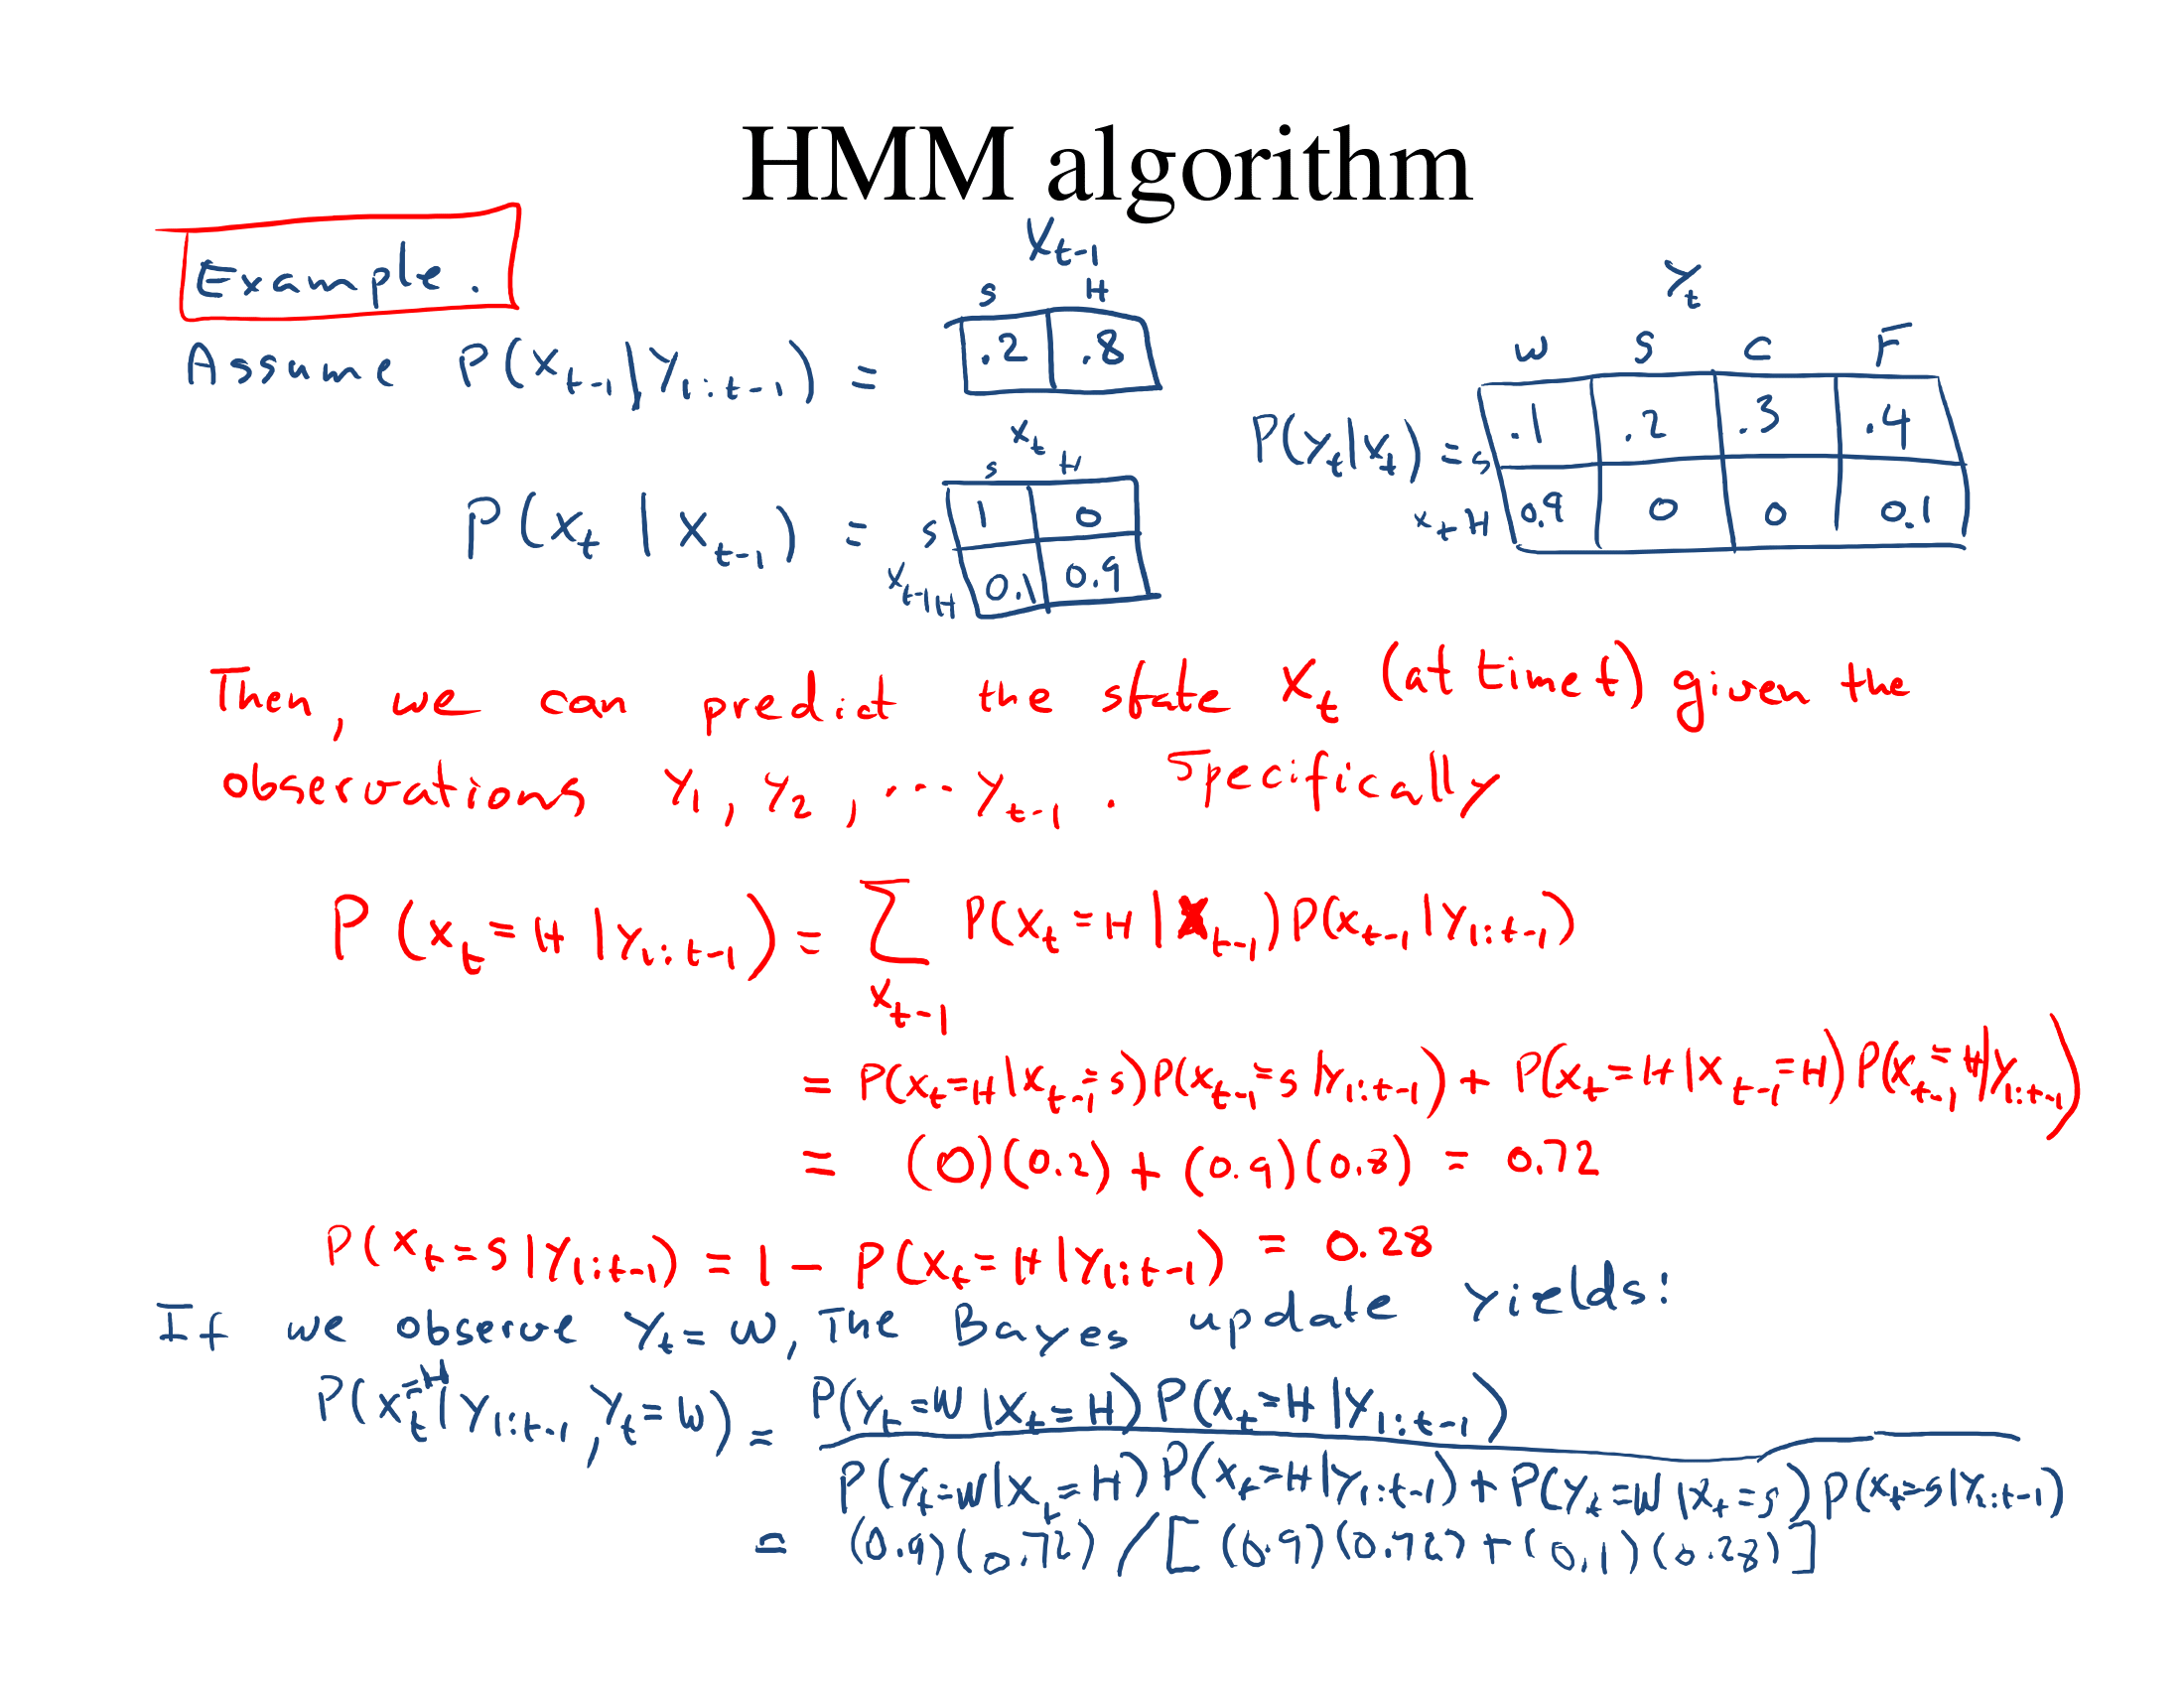 HMM algorithm
Example.
X_{t-1}
S H
Assume P(X_{t-1}|Y_{1:t-1}) = .2 .8
X_t
S H
P(X_t | X_{t-1}) = S 1 0
X_{t-1} H 0.1 0.9
Y_t
W S C F
P(Y_t|X_t) = S .1 .2 .3 .4
X_t H 0.9 0 0 0.1
Then, we can predict the state X_t (at time t) given the
observations Y_1, Y_2, ... Y_{t-1}. Specifically
P(X_t = H | Y_{1:t-1}) = Σ P(X_t = H | X_{t-1}) P(X_{t-1} | Y_{1:t-1})
X_{t-1}
= P(X_t = H | X_{t-1} = S) P(X_{t-1} = S | Y_{1:t-1}) + P(X_t = H | X_{t-1} = H) P(X_{t-1} = H | Y_{1:t-1})
= (0)(0.2) + (0.9)(0.8) = 0.72
P(X_t = S | Y_{1:t-1}) = 1 - P(X_t = H | Y_{1:t-1}) = 0.28
If we observe Y_t = W, The Bayes update yields:
P(X_t = H | Y_{1:t-1}, Y_t = W) = P(Y_t = W | X_t = H) P(X_t = H | Y_{1:t-1})
P(Y_t = W | X_t = H) P(X_t = H | Y_{1:t-1}) + P(Y_t = W | X_t = S) P(X_t = S | Y_{1:t-1})
= (0.9)(0.72) / [(0.9)(0.72) + (0.1)(0.28)]